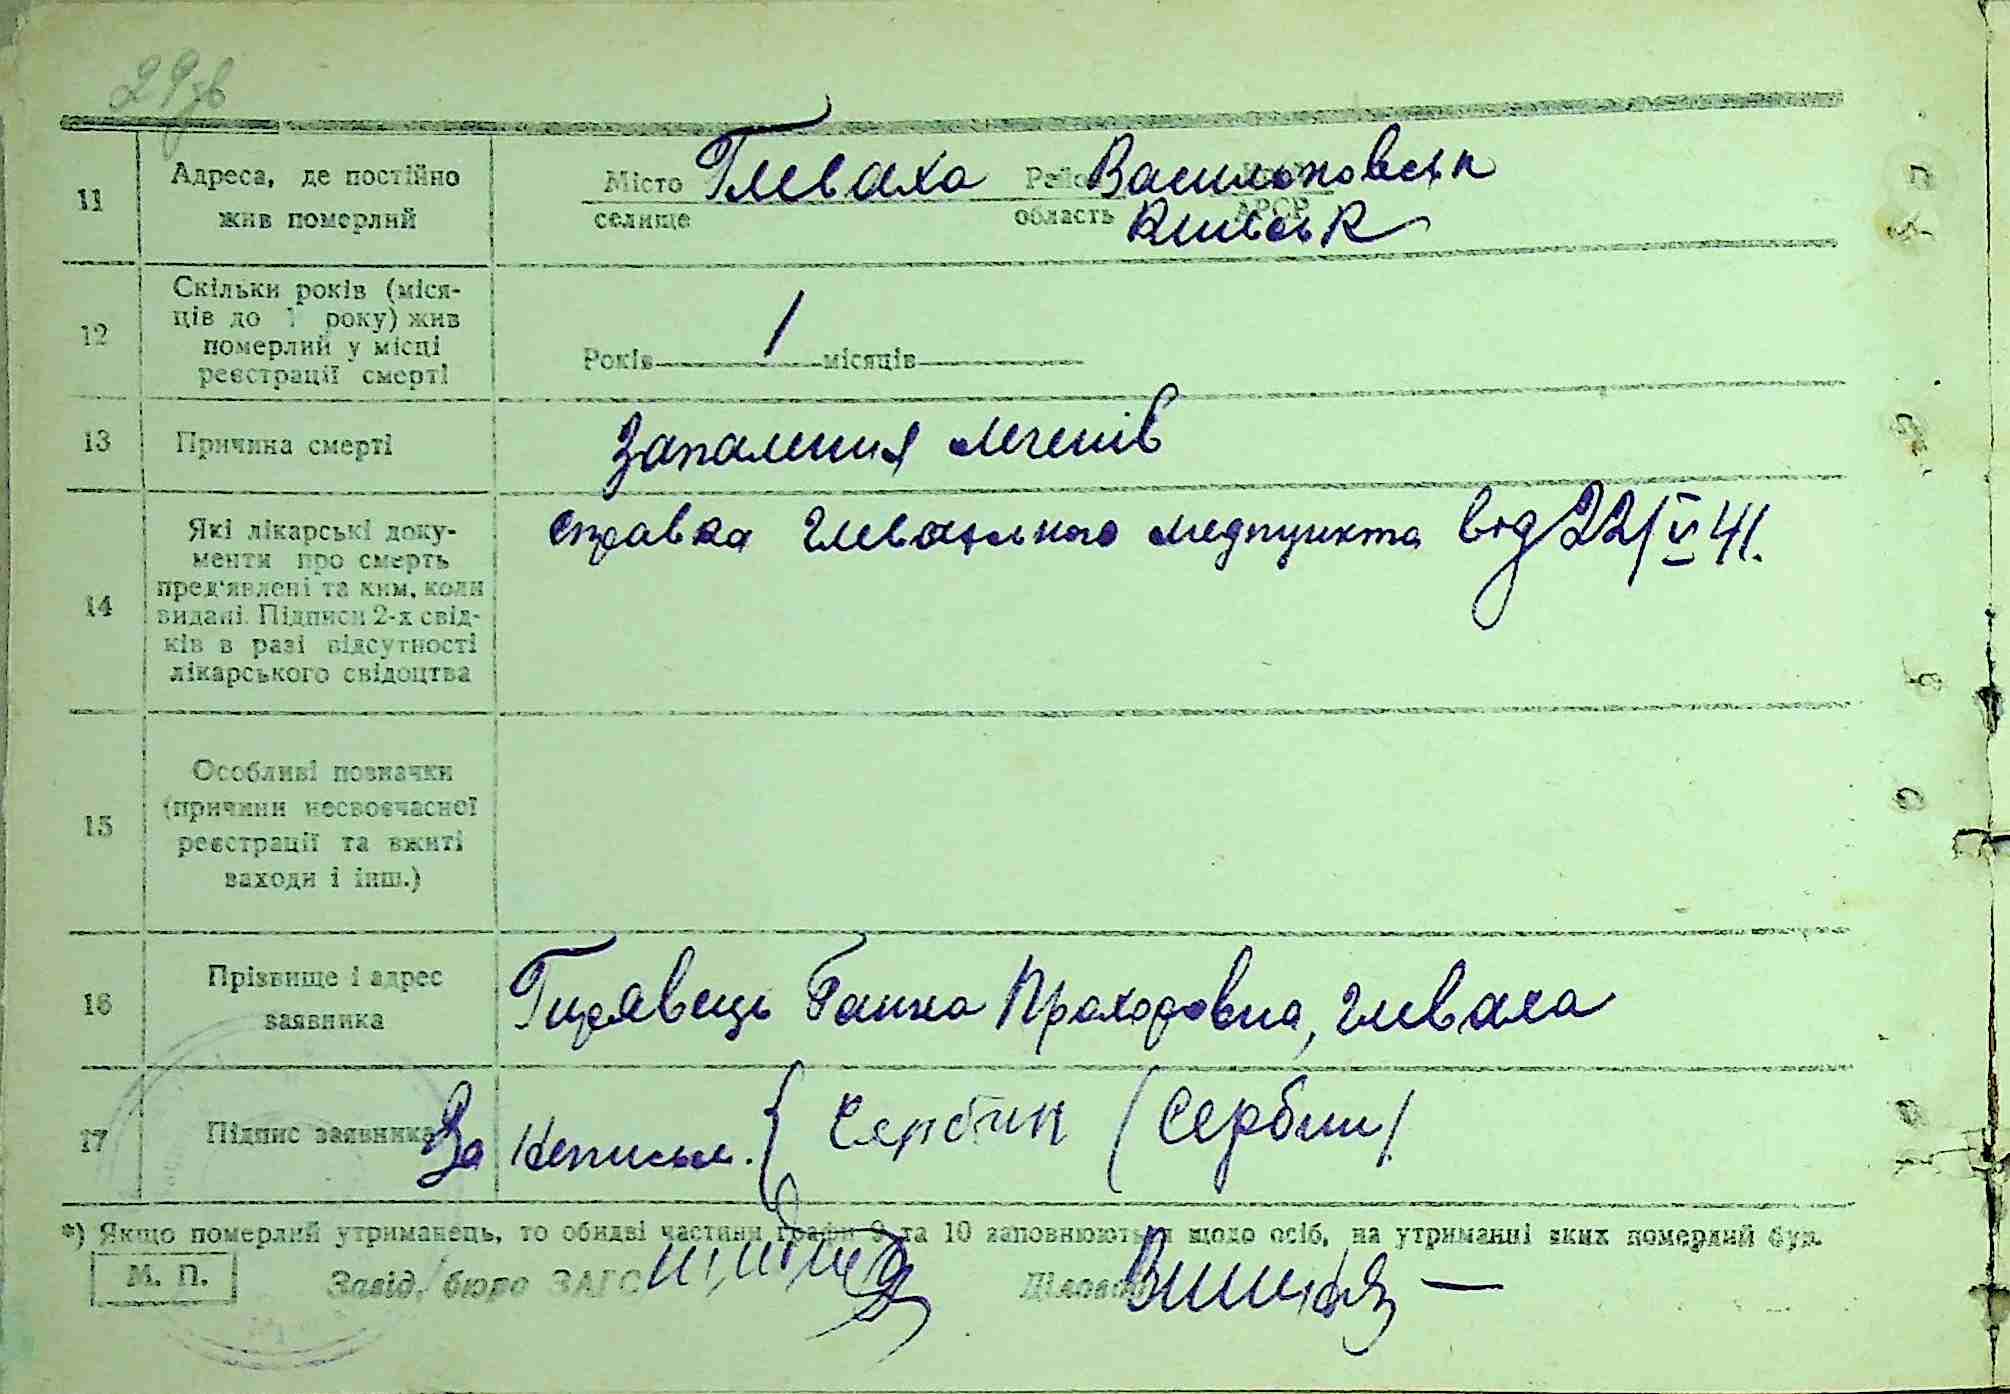 29зв
11 Адреса, де постійно жив померлий
Місто Глеваха Район Васильковськ
селище область Київськ АРСР
12 Скільки років (міся-
ців до 1 року) жив
померлий у місці
реєстрації смерті
Років 1 місяців
13 Причина смерті Запалення легенів
14 Які лікарські доку-
менти про смерть
пред'явлені та ким, коли
видані. Підписи 2-х свід-
ків в разі відсутності
лікарського свідоцтва
справка Глевахського медпункта від 22/V 41.
15 Особливі позначки
(причини несвоєчасної
реєстрації та вжиті
заходи і інш.)
16 Прізвище і адрес
заявника
Ганна Прохоровна, Глеваха
17 Підпис заявника За неписьм. { Сербин (Сербин)
*) Якщо померлий утриманець, то обидві частини графи 9 та 10 заповнюються щодо осіб, на утриманні яких померлий був.
М. П. Завід. бюро ЗАГС Діловод